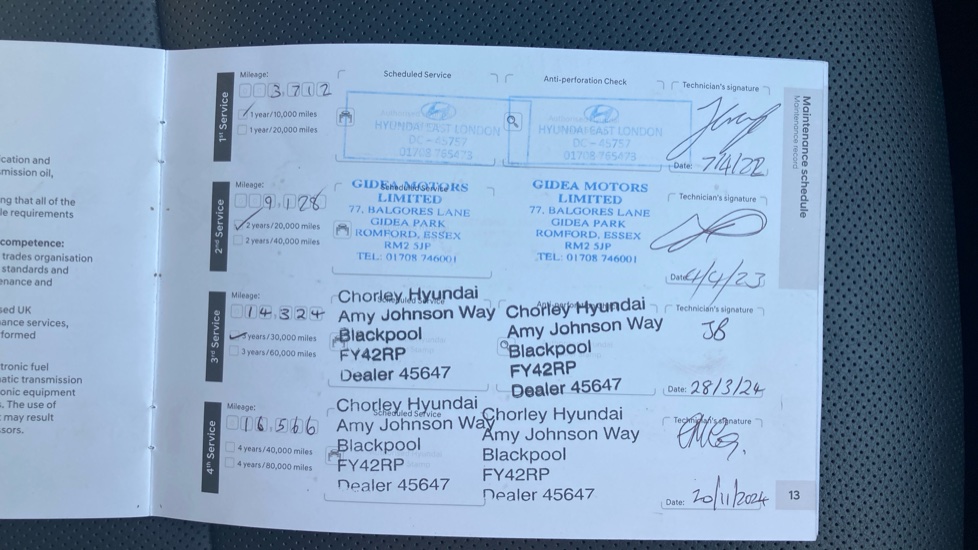 cation and
mission oil,
ng that all of the
le requirements
competence:
trades organisation
standards and
enance and
sed UK
ance services,
formed
tronic fuel
atic transmission
onic equipment
. The use of
may result
sors.
Maintenance schedule
Maintenance record
1st Service
Mileage:
3,712
1 year/10,000 miles
1 year/20,000 miles
Scheduled Service
HYUNDAI EAST LONDON
DC - 45757
01708 765473
Anti-perforation Check
HYUNDAI EAST LONDON
DC - 45757
01708 765473
Technician's signature
Date: 7/4/22
2nd Service
Mileage:
9,128
2 years/20,000 miles
2 years/40,000 miles
Scheduled Service
GIDEA MOTORS
LIMITED
77, BALGORES LANE
GIDEA PARK
ROMFORD, ESSEX
RM2 5JP
TEL: 01708 746001
GIDEA MOTORS
LIMITED
77, BALGORES LANE
GIDEA PARK
ROMFORD, ESSEX
RM2 5JP
TEL: 01708 746001
Technician's signature
Date: 4/4/23
3rd Service
Mileage:
14,324
3 years/30,000 miles
3 years/60,000 miles
Scheduled Service
Chorley Hyundai
Amy Johnson Way
Blackpool
FY42RP
Dealer 45647
Chorley Hyundai
Amy Johnson Way
Blackpool
FY42RP
Dealer 45647
Technician's signature
JB
Date: 28/3/24
4th Service
Mileage:
16,566
4 years/40,000 miles
4 years/80,000 miles
Scheduled Service
Chorley Hyundai
Amy Johnson Way
Blackpool
FY42RP
Dealer 45647
Chorley Hyundai
Amy Johnson Way
Blackpool
FY42RP
Dealer 45647
Technician's signature
Date: 20/11/2024
13